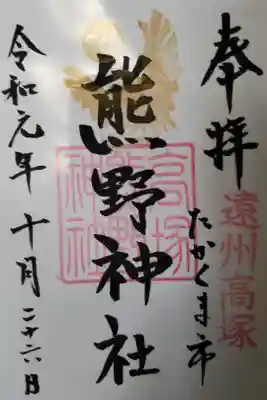 奉拝
遠州高塚
たかくま市
熊野神社
高塚熊野神社
令和元年十月二十六日